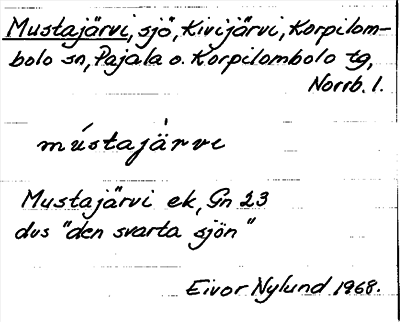 Mustajärvi, sjö, Kivijärvi, Korpilom-
bolo sn, Pajala o. Korpilombolo tg,
Norrb. l.
mústajä̀rvi
Mustajärvi ek, Gn 23
dvs "den svarta sjön"
Eivor Nylund 1968.